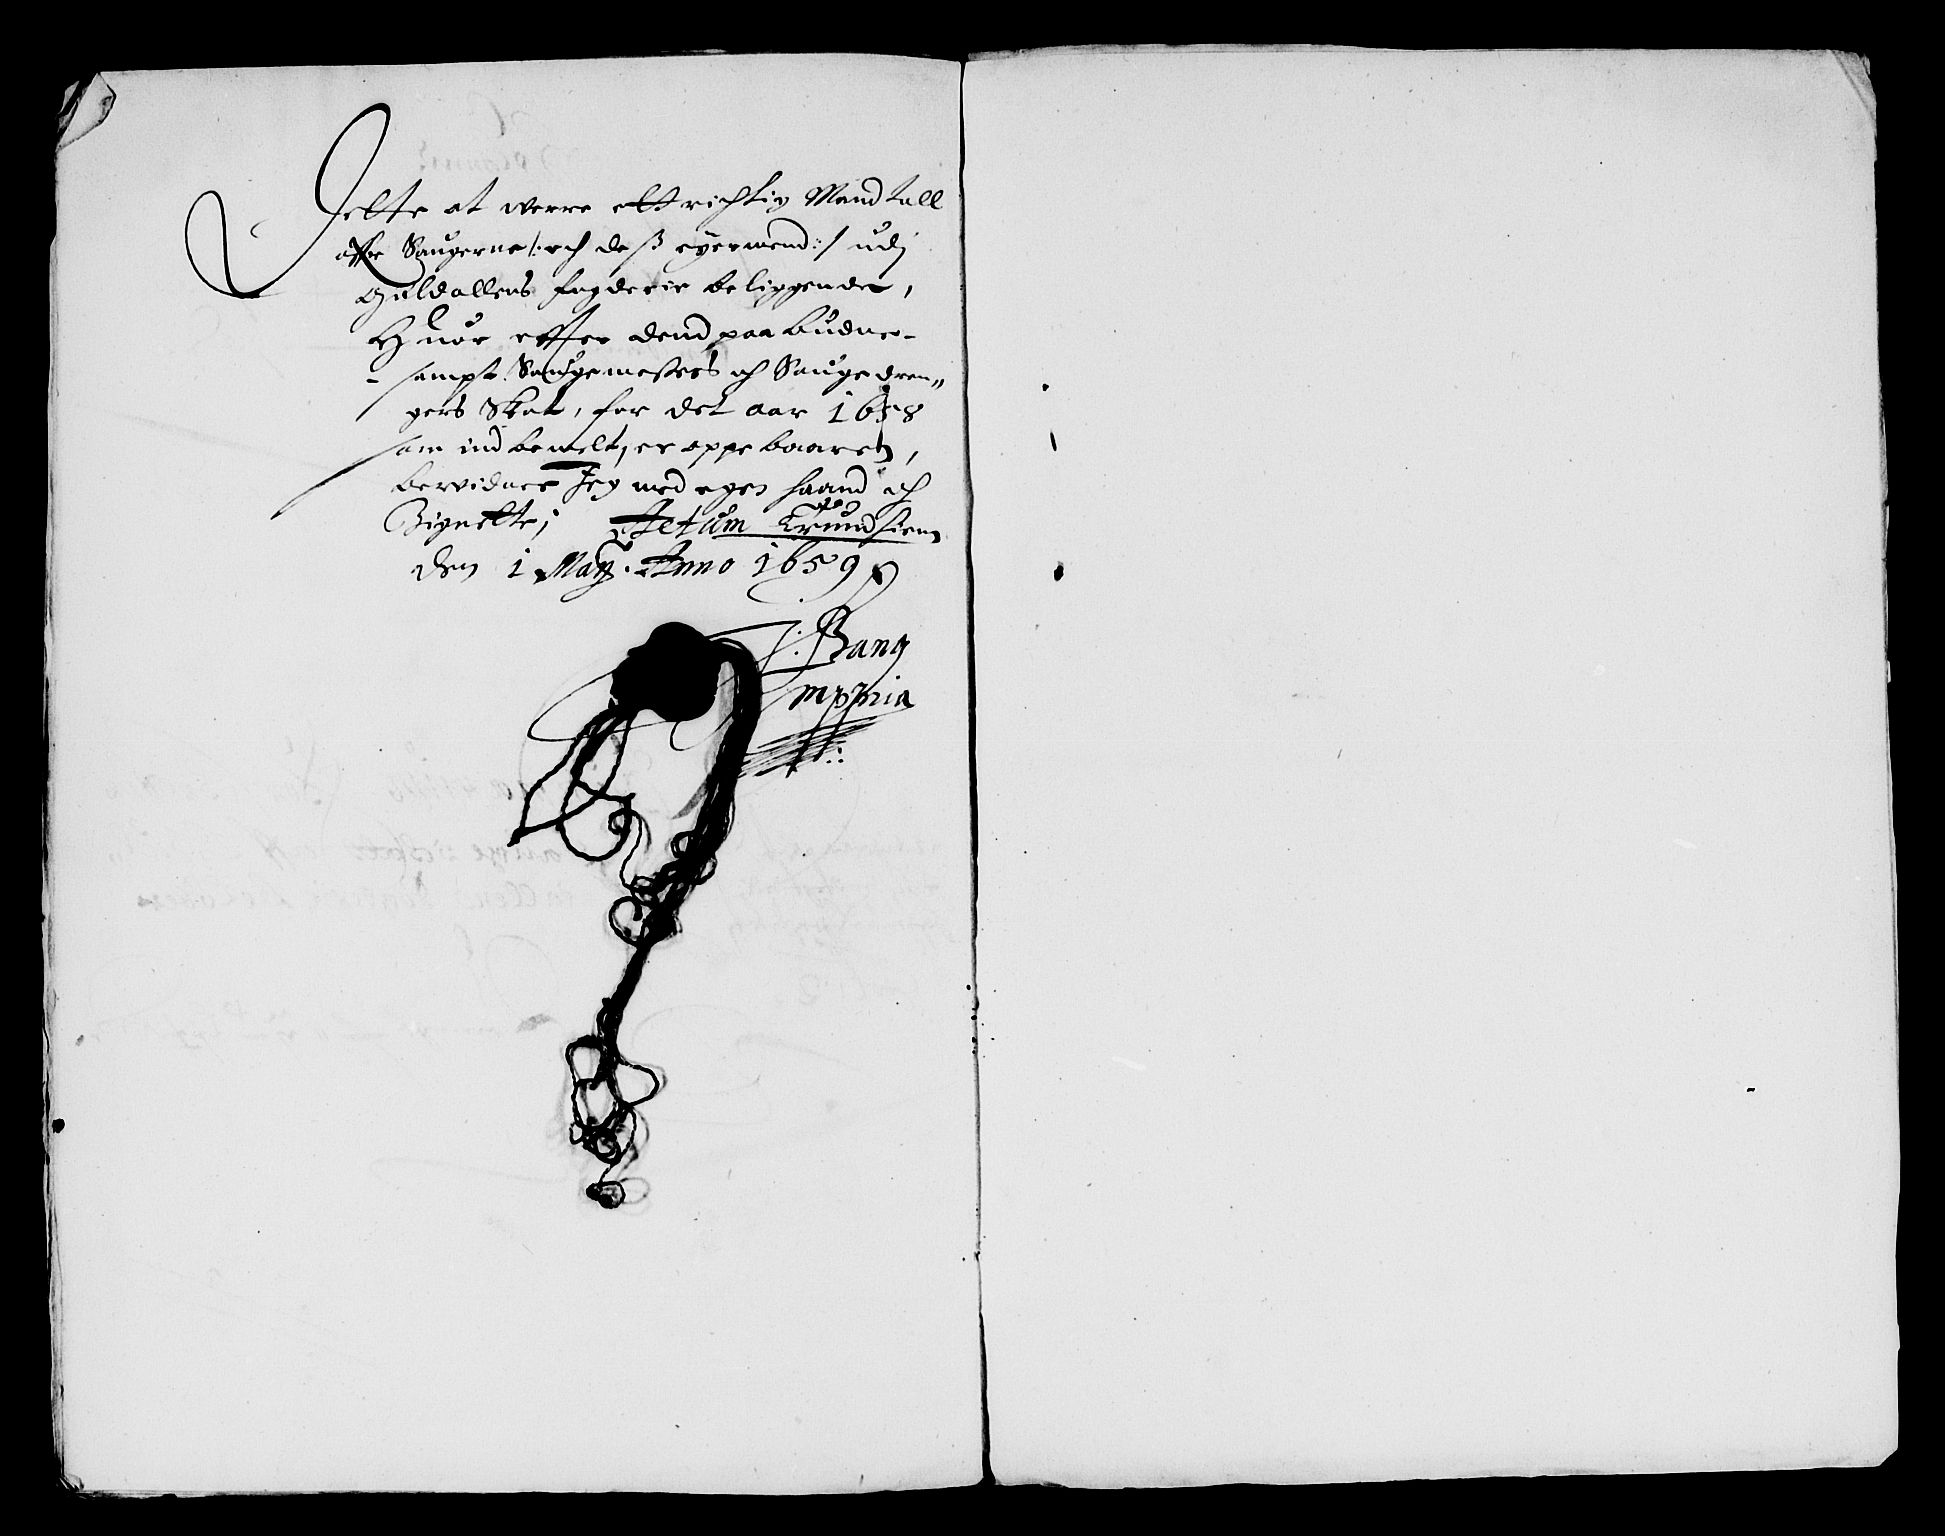 Dette at werre ett richtig Mandtall
offr Saugerne /: och deß eyermend :/ udj
Guldallens fogderie beliggendes,
Huor effter dend paabudne
sampt Saugemesters och Saugedren„
gers Skat, for det aar 1658
som indbemelt, er oppebaaren,
beridner Jeg med egen haand och
Signette; Actum Trundhiem
den 1 Maij. Anno 1659
J: Bang
mppria